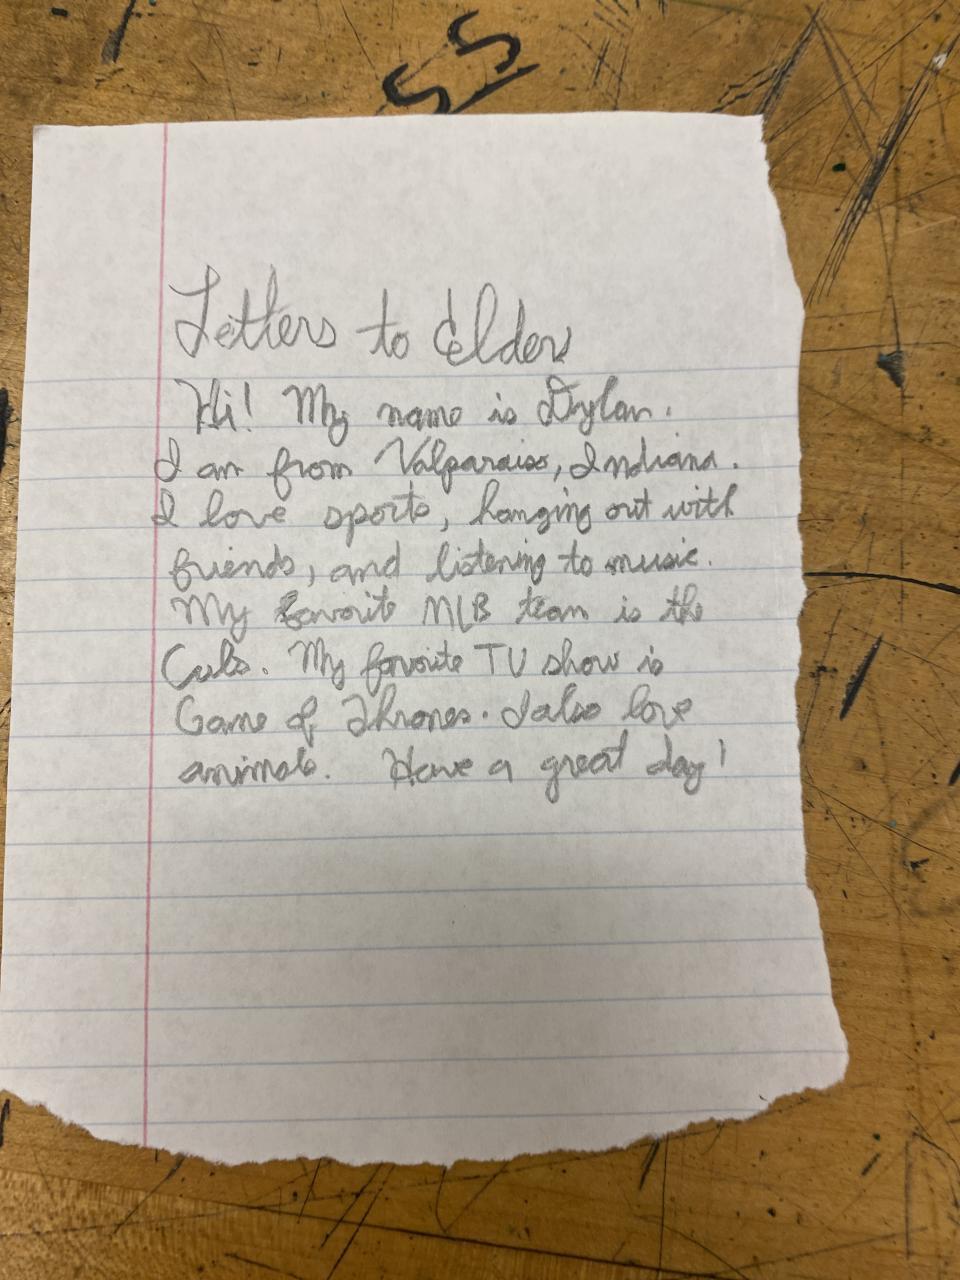 SS
Letters to Elders
Hi! My name is Dylan.
I am from Valparaiso, Indiana.
I love sports, hanging out with
friends, and listening to music.
My favorite MLB team is the
Cubs. My favorite TV show is
Game of Thrones. I also love
animals. Have a great day!